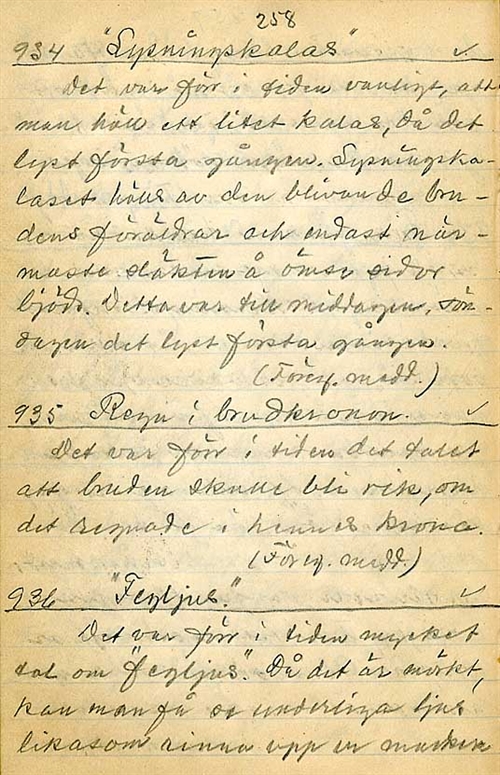 258
934 "Lysningskalas" ✓
Det var förr i tiden vanligt, att
man höll ett litet kalas, då det
lyst första gången. Lysningska-
laset hölls av den blivande bru-
dens föräldrar och endast när-
maste släkten å ömse sidor
bjöds. Detta var till middagen, sön-
dagen det lyst första gången.
(Föreg. medd.)
935 Regn i brudkronon. ✓
Det var förr i tiden det talet
att bruden skulle bli rik, om
det regnade i hennes krona.
(Föreg. medd.)
936 "Feyljus." ✓
Det var förr i tiden mycket
tal om "feyljus". Då det är mörkt,
kan man få se underliga ljus
likasom rinna upp ur marken